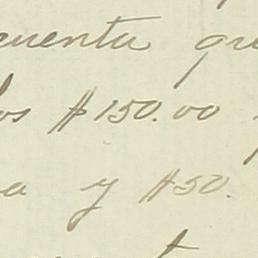 cuenta qu
los $150.00
a y $50.